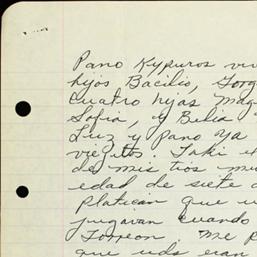 Pano Kypuros viv
hijos Bacilio, Jorg
cuatro hijas Mag
Sofia, y Bulia
Luz y pano ya
viejitos. Taki e
de mis tios mu
edad de siete a
platican que u
jugavan cuando
Torreon Me p
que uds eran